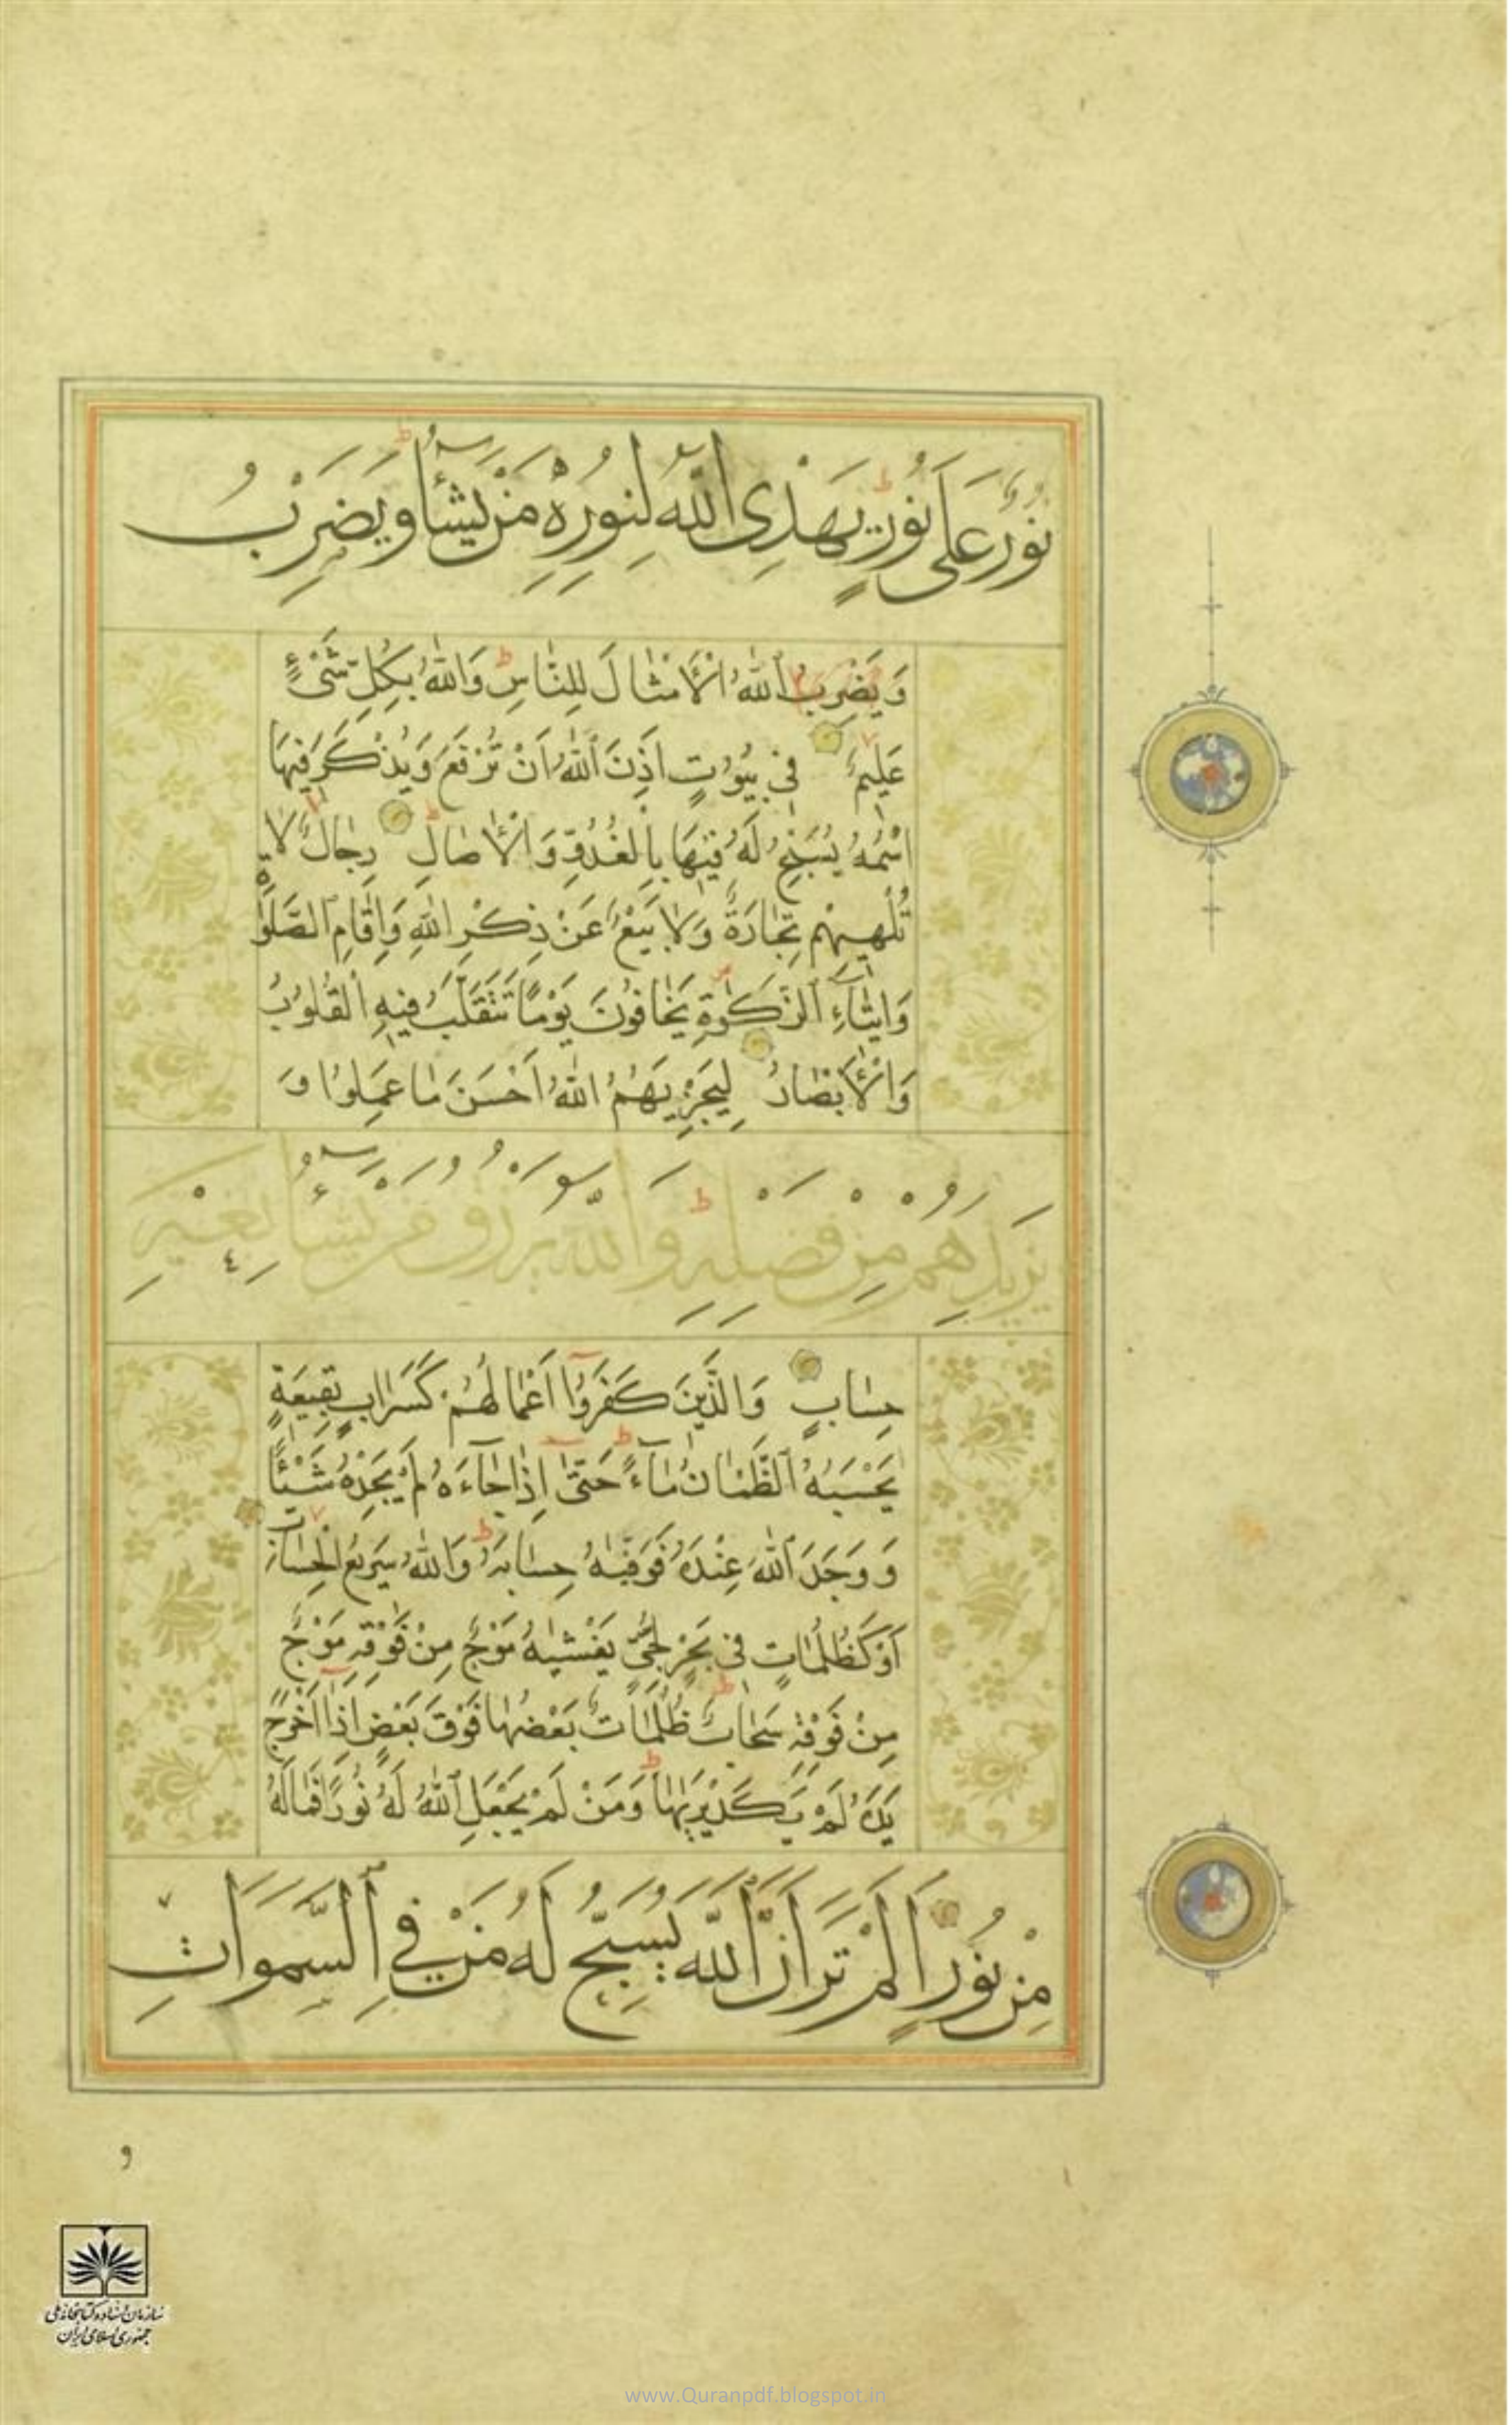 نُورٌ عَلَى نُورٍ يَهْدِي اللَّهُ لِنُورِهِ مَنْ يَشَاءُ وَيَضْرِبُ
وَيَضْرِبُ اللّٰهُ الْاَمْثَالَ لِلنَّاسِ وَاللّٰهُ بِكُلِّ شَيْءٍ
عَلِيمٌ فِي بُيُوتٍ اَذِنَ اللّٰهُ اَنْ تُرْفَعَ وَيُذْكَرَ فِيهَا
اسْمُهُ يُسَبِّحُ لَهُ فِيهَا بِالْغُدُوِّ وَالْاٰصَالِ رِجَالٌ لَا
تُلْهِيهِمْ تِجَارَةٌ وَلَا بَيْعٌ عَنْ ذِكْرِ اللّٰهِ وَاِقَامِ الصَّلٰوةِ
وَاِيتَاءِ الزَّكٰوةِ يَخَافُونَ يَوْمًا تَتَقَلَّبُ فِيهِ الْقُلُوبُ
وَالْاَبْصَارُ لِيَجْزِيَهُمُ اللّٰهُ اَحْسَنَ مَا عَمِلُوا وَ
يَزِيدَهُمْ مِنْ فَضْلِهِ وَاللَّهُ يَرْزُقُ مَنْ يَشَاءُ بِغَيْرِ
حِسَابٍ وَالَّذِينَ كَفَرُوا اَعْمَالُهُمْ كَسَرَابٍ بِقِيعَةٍ
يَحْسَبُهُ الظَّمْاٰنُ مَاءً حَتّٰى اِذَا جَاءَهُ لَمْ يَجِدْهُ شَيْئًا
وَوَجَدَ اللّٰهَ عِنْدَهُ فَوَفّٰيهُ حِسَابَهُ وَاللّٰهُ سَرِيعُ الْحِسَابِ
اَوْ كَظُلُمَاتٍ فِي بَحْرٍ لُجِّيٍّ يَغْشٰيهُ مَوْجٌ مِنْ فَوْقِهِ مَوْجٌ
مِنْ فَوْقِهِ سَحَابٌ ظُلُمَاتٌ بَعْضُهَا فَوْقَ بَعْضٍ اِذَا اَخْرَجَ
يَدَهُ لَمْ يَكَدْ يَرٰيهَا وَمَنْ لَمْ يَجْعَلِ اللّٰهُ لَهُ نُورًا فَمَا لَهُ
مِنْ نُورٍ اَلَمْ تَرَ اَنَّ اللَّهَ يُسَبِّحُ لَهُ مَنْ فِي السَّمَوَاتِ
و
سازمان اسناد و کتابخانه ملی
جمهوری اسلامی ایران
www.Quranpdf.blogspot.in